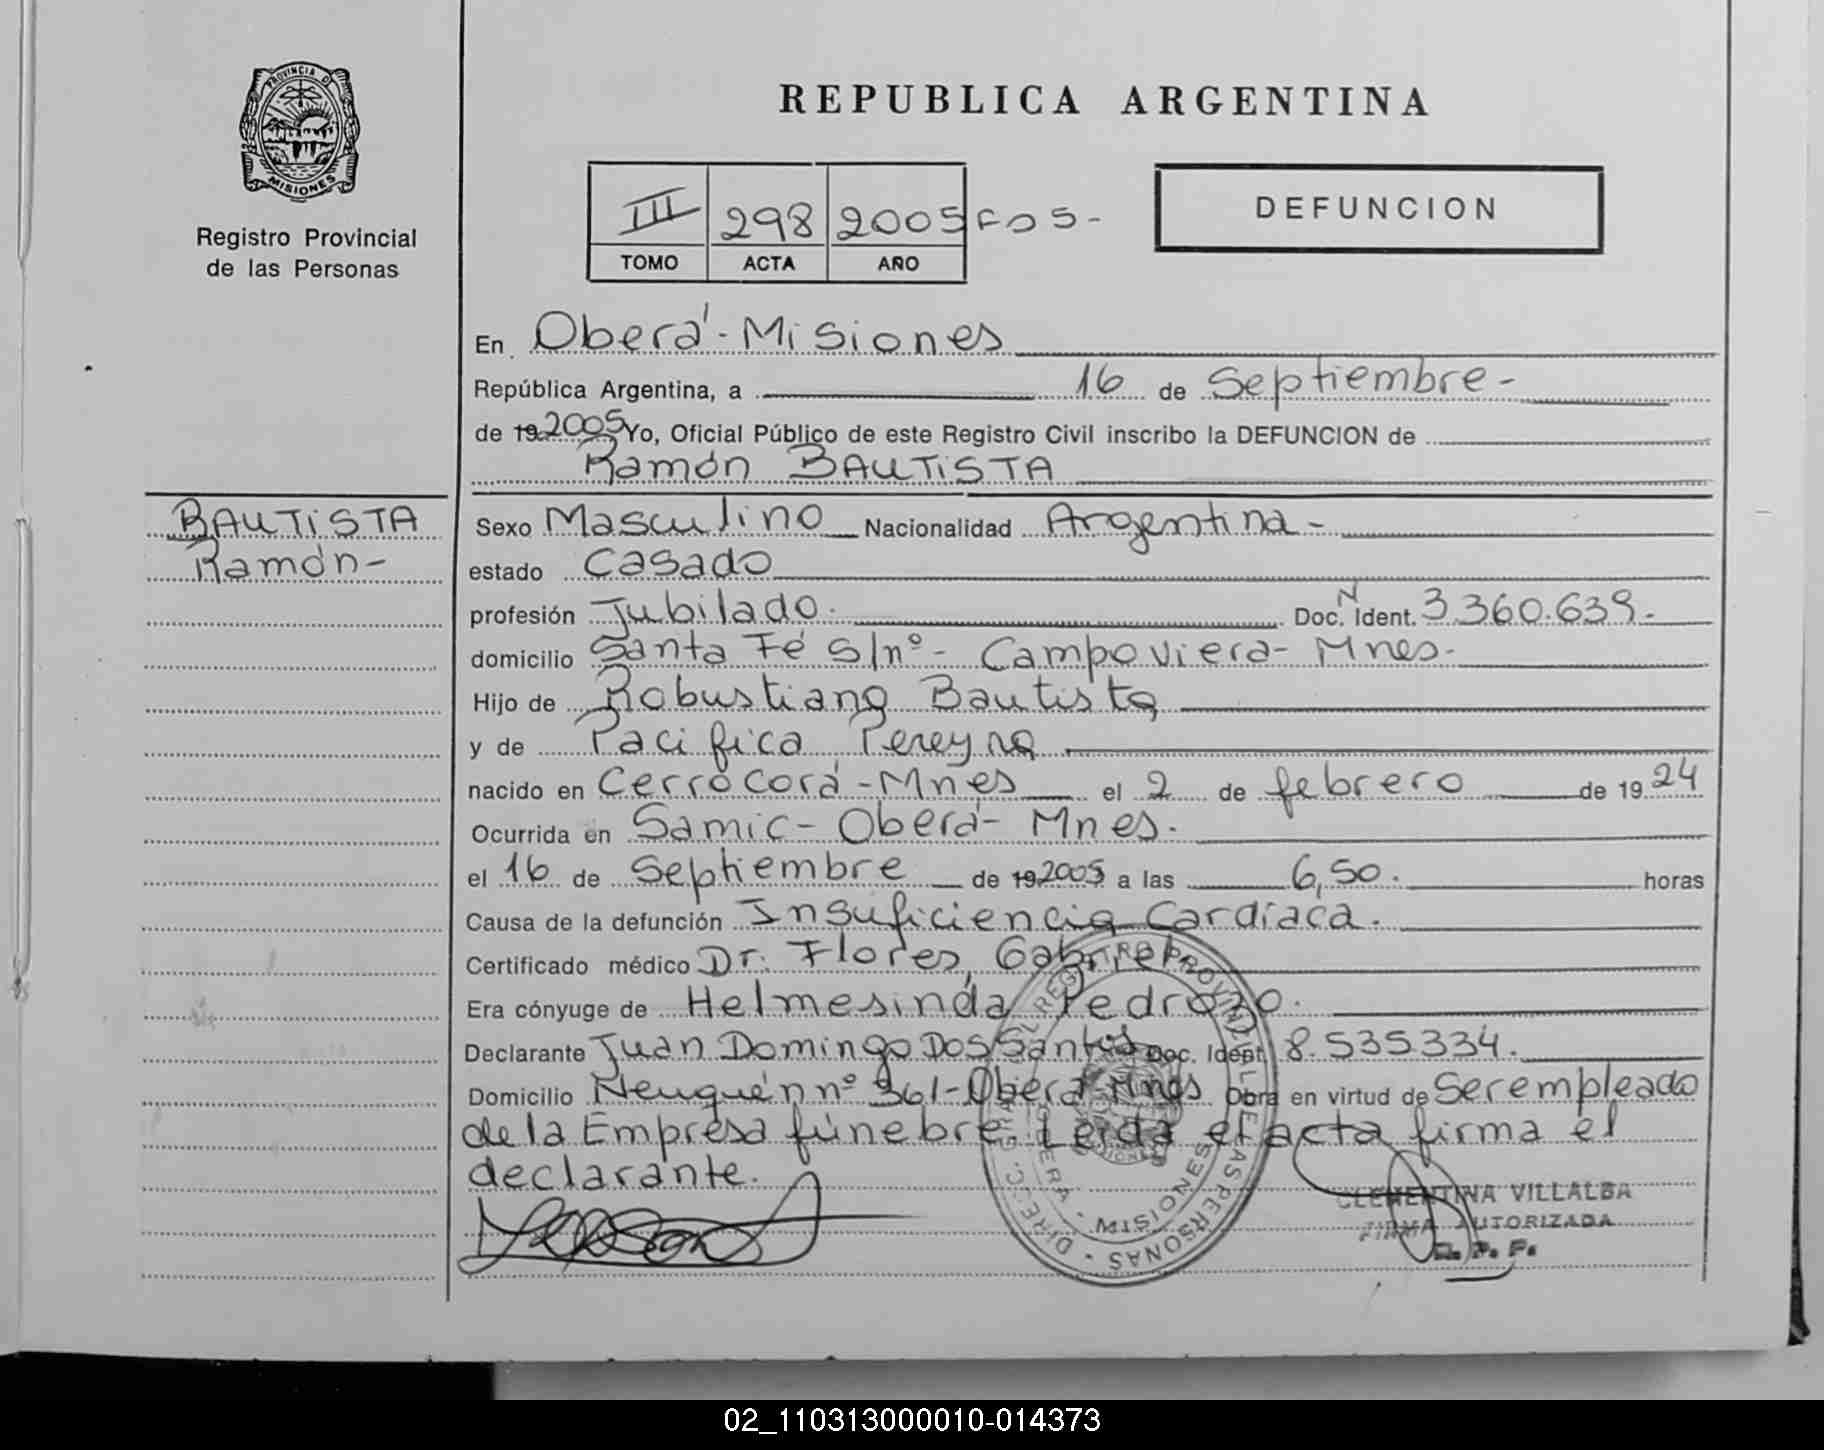 PROVINCIA DE
MISIONES
Registro Provincial
de las Personas
REPUBLICA ARGENTINA
III 298 2005
TOMO ACTA AÑO
DEFUNCION
En Oberá - Misiones
República Argentina, a 16 de Septiembre -
de 19 2005 Yo, Oficial Público de este Registro Civil inscribo la DEFUNCION de
Ramón BAUTISTA
BAUTISTA
Ramón -
Sexo Masculino Nacionalidad Argentina -
estado Casado
profesión Jubilado. Doc. N Ident. 3.360.639.-
domicilio Santa Fé S/nº - Campo viera - Mnes.
Hijo de Robustiano Bautista
y de Pacifica Pereyra
nacido en Cerro Corá - Mnes el 2 de febrero de 19 24
Ocurrida en Samic - Oberá - Mnes.
el 16 de Septiembre de 19 2005 a las 6,50. horas
Causa de la defunción Insuficiencia Cardíaca.
Certificado médico Dr. Flores, Gabriel.
Era cónyuge de Helmesinda Pedrozo.
Declarante Juan Domingo Dos Santos Doc. Ident. 8.535334.
Domicilio Neuquén nº 361 - Oberá - Mnes Obra en virtud de Ser empleado
de la Empresa fúnebre. Leída el acta firma el
declarante.
CLEMENTINA VILLALBA
FIRMA AUTORIZADA
MISIONES
02_110313000010-014373